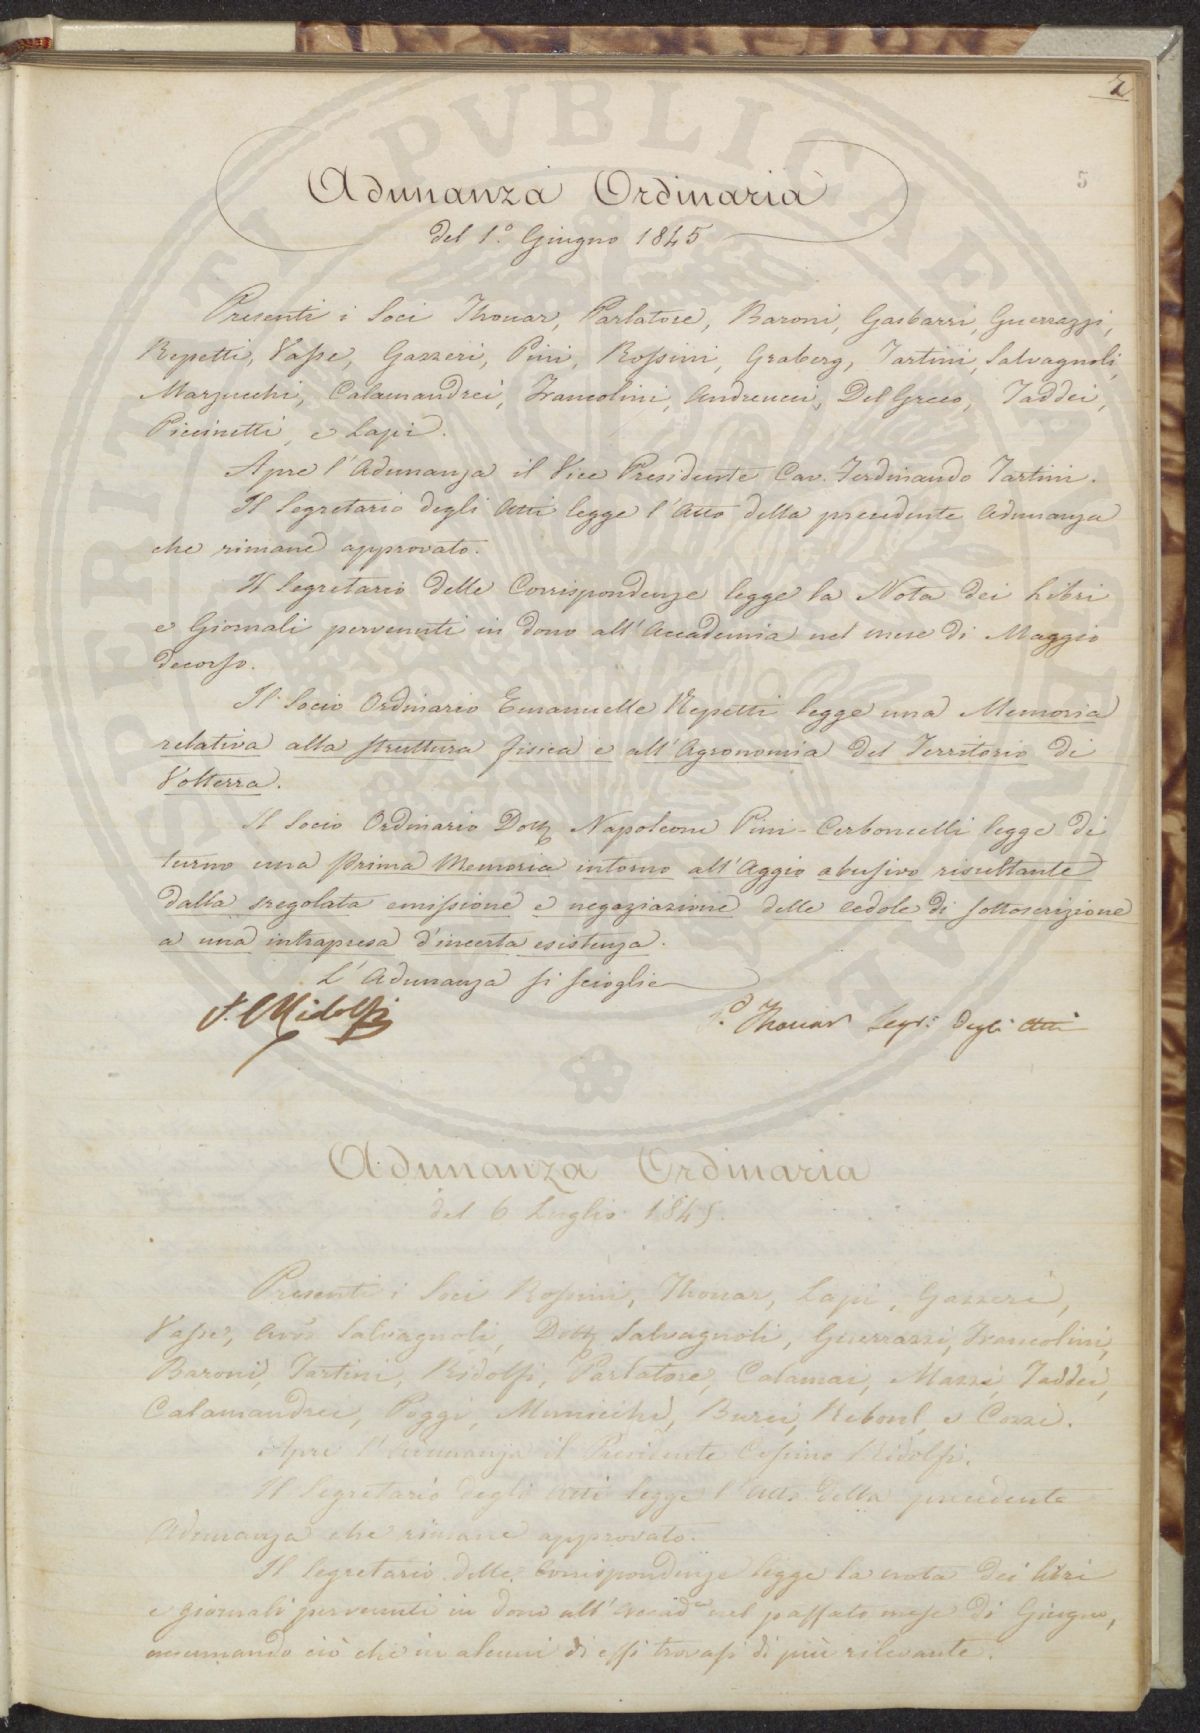 2
5
Adunanza Ordinaria
del 1.° Giugno 1845
Presenti i Soci Thouar, Parlatore, Baroni, Gasbarri, Guerrazzi,
Repetti, Vasse, Gazzeri, Pini, Rossini, Graberg, Tartini, Salvagnoli,
Marzucchi, Calamandrei, Francolini, Andreucci, Del Greco, Taddei,
Piccinetti, e Lapi.
Apre l'Adunanza il Vice Presidente Cav. Ferdinando Tartini.
Il Segretario degli Atti legge l'Atto della precedente Adunanza
che rimane approvato.
Il Segretario delle Corrispondenze legge la Nota dei Libri
e Giornali pervenuti in dono all'Accademia nel mese di Maggio
decorso.
Il Socio Ordinario Emanuelle Repetti legge una Memoria
relativa alla struttura fisica e all'Agronomia del Territorio di
Volterra.
Il Socio Ordinario Dott. Napoleone Pini-Carboncelli legge di
turno una prima Memoria intorno all'Aggio abusivo risultante
dalla sregolata emissione e negoziazione delle cedole di sottoscrizione
a una intrapresa d'incerta esistenza.
L'Adunanza si scioglie
C. Ridolfi
P.° Thouar Segr. degli Atti
Adunanza Ordinaria
del 6 Luglio 1845.
Presenti i Soci Rossini, Thouar, Lapi, Gazzeri,
Vasse, Avv. Salvagnoli, Dott. Salvagnoli, Guerrazzi, Francolini,
Baroni, Tartini, Ridolfi, Parlatore, Calamai, Mazzi, Taddei,
Calamandrei, Poggi, Municchi, Burci, Reboul, e Cozzi.
Apre l'Adunanza il Presidente Cosimo Ridolfi.
Il Segretario degli Atti legge l'Atto della precedente
Adunanza che rimane approvato.
Il Segretario delle Corrispondenze legge la nota dei libri
e giornali pervenuti in dono all'Accad. nel passato mese di Giugno,
riassumendo ciò che in alcuni di essi trovasi di più rilevante.